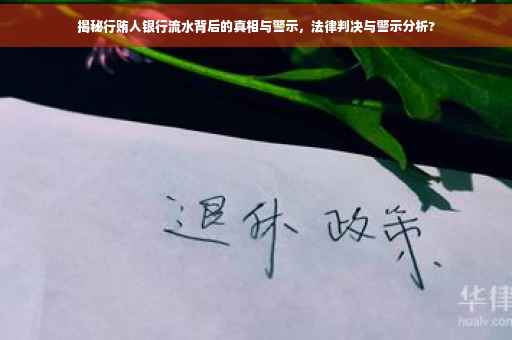 揭秘行贿人银行流水背后的真相与警示，法律判决与警示分析？
退休 政策
华律
hualv.com